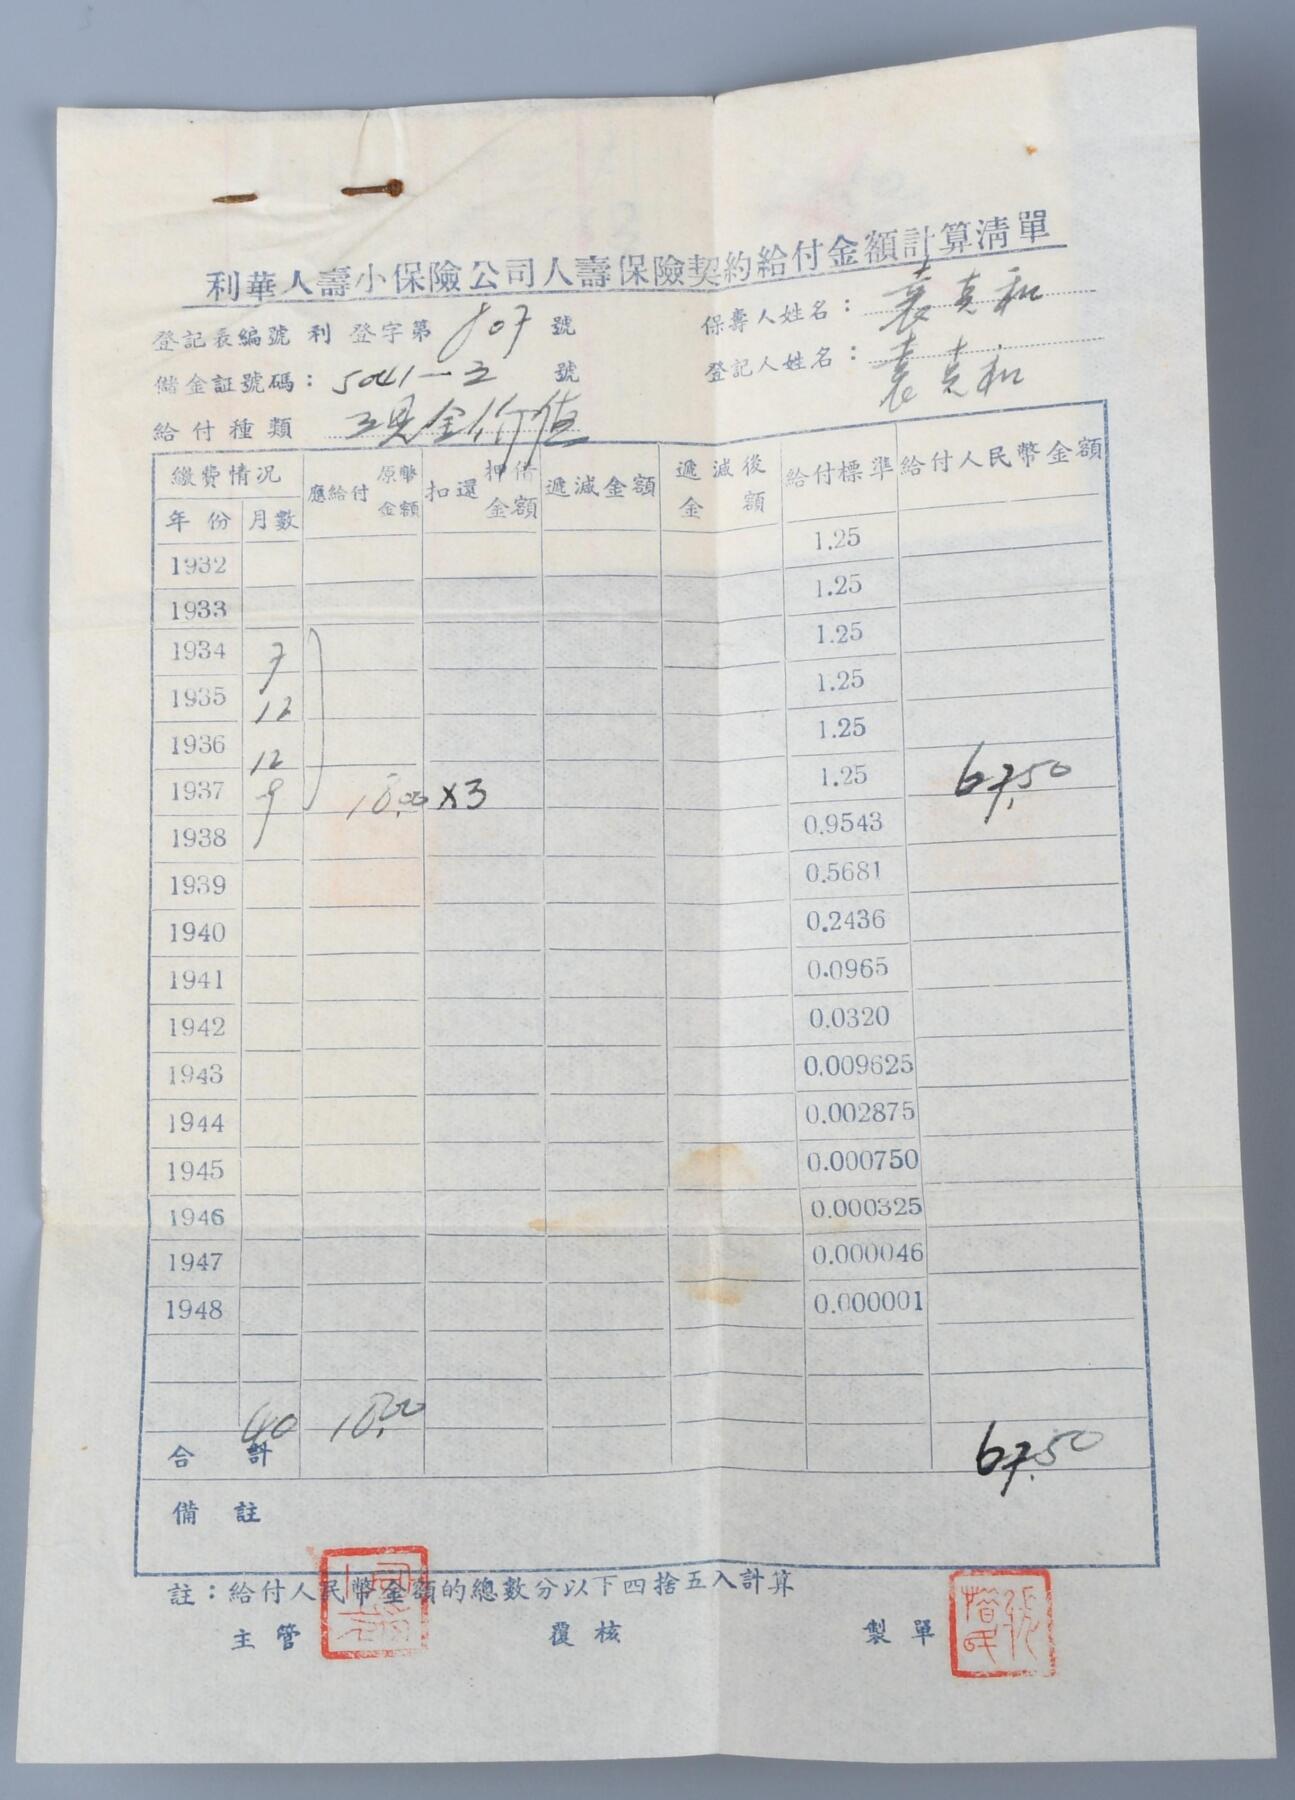 利華人壽小保險公司人壽保險契約給付金額計算清單
登記表編號 利 登字第 807 號 保壽人姓名：袁克和
儲金証號碼：5041-2 號 登記人姓名：袁克和
給付種類 現金价值
繳費情況 應給付 原幣金額 扣還 押借金額 遞減金額 遞減後金額 給付標準 給付人民幣金額
年份 月數
1932 1.25
1933 1.25
1934 7 1.25
1935 12 1.25
1936 12 1.25
1937 9 18.00 ×3 1.25 67.50
1938 0.9543
1939 0.5681
1940 0.2436
1941 0.0965
1942 0.0320
1943 0.009625
1944 0.002875
1945 0.000750
1946 0.000325
1947 0.000046
1948 0.000001
合計 40 18.00 67.50
備註
註：給付人民幣金額的總數分以下四捨五入計算
主管 覆核 製單